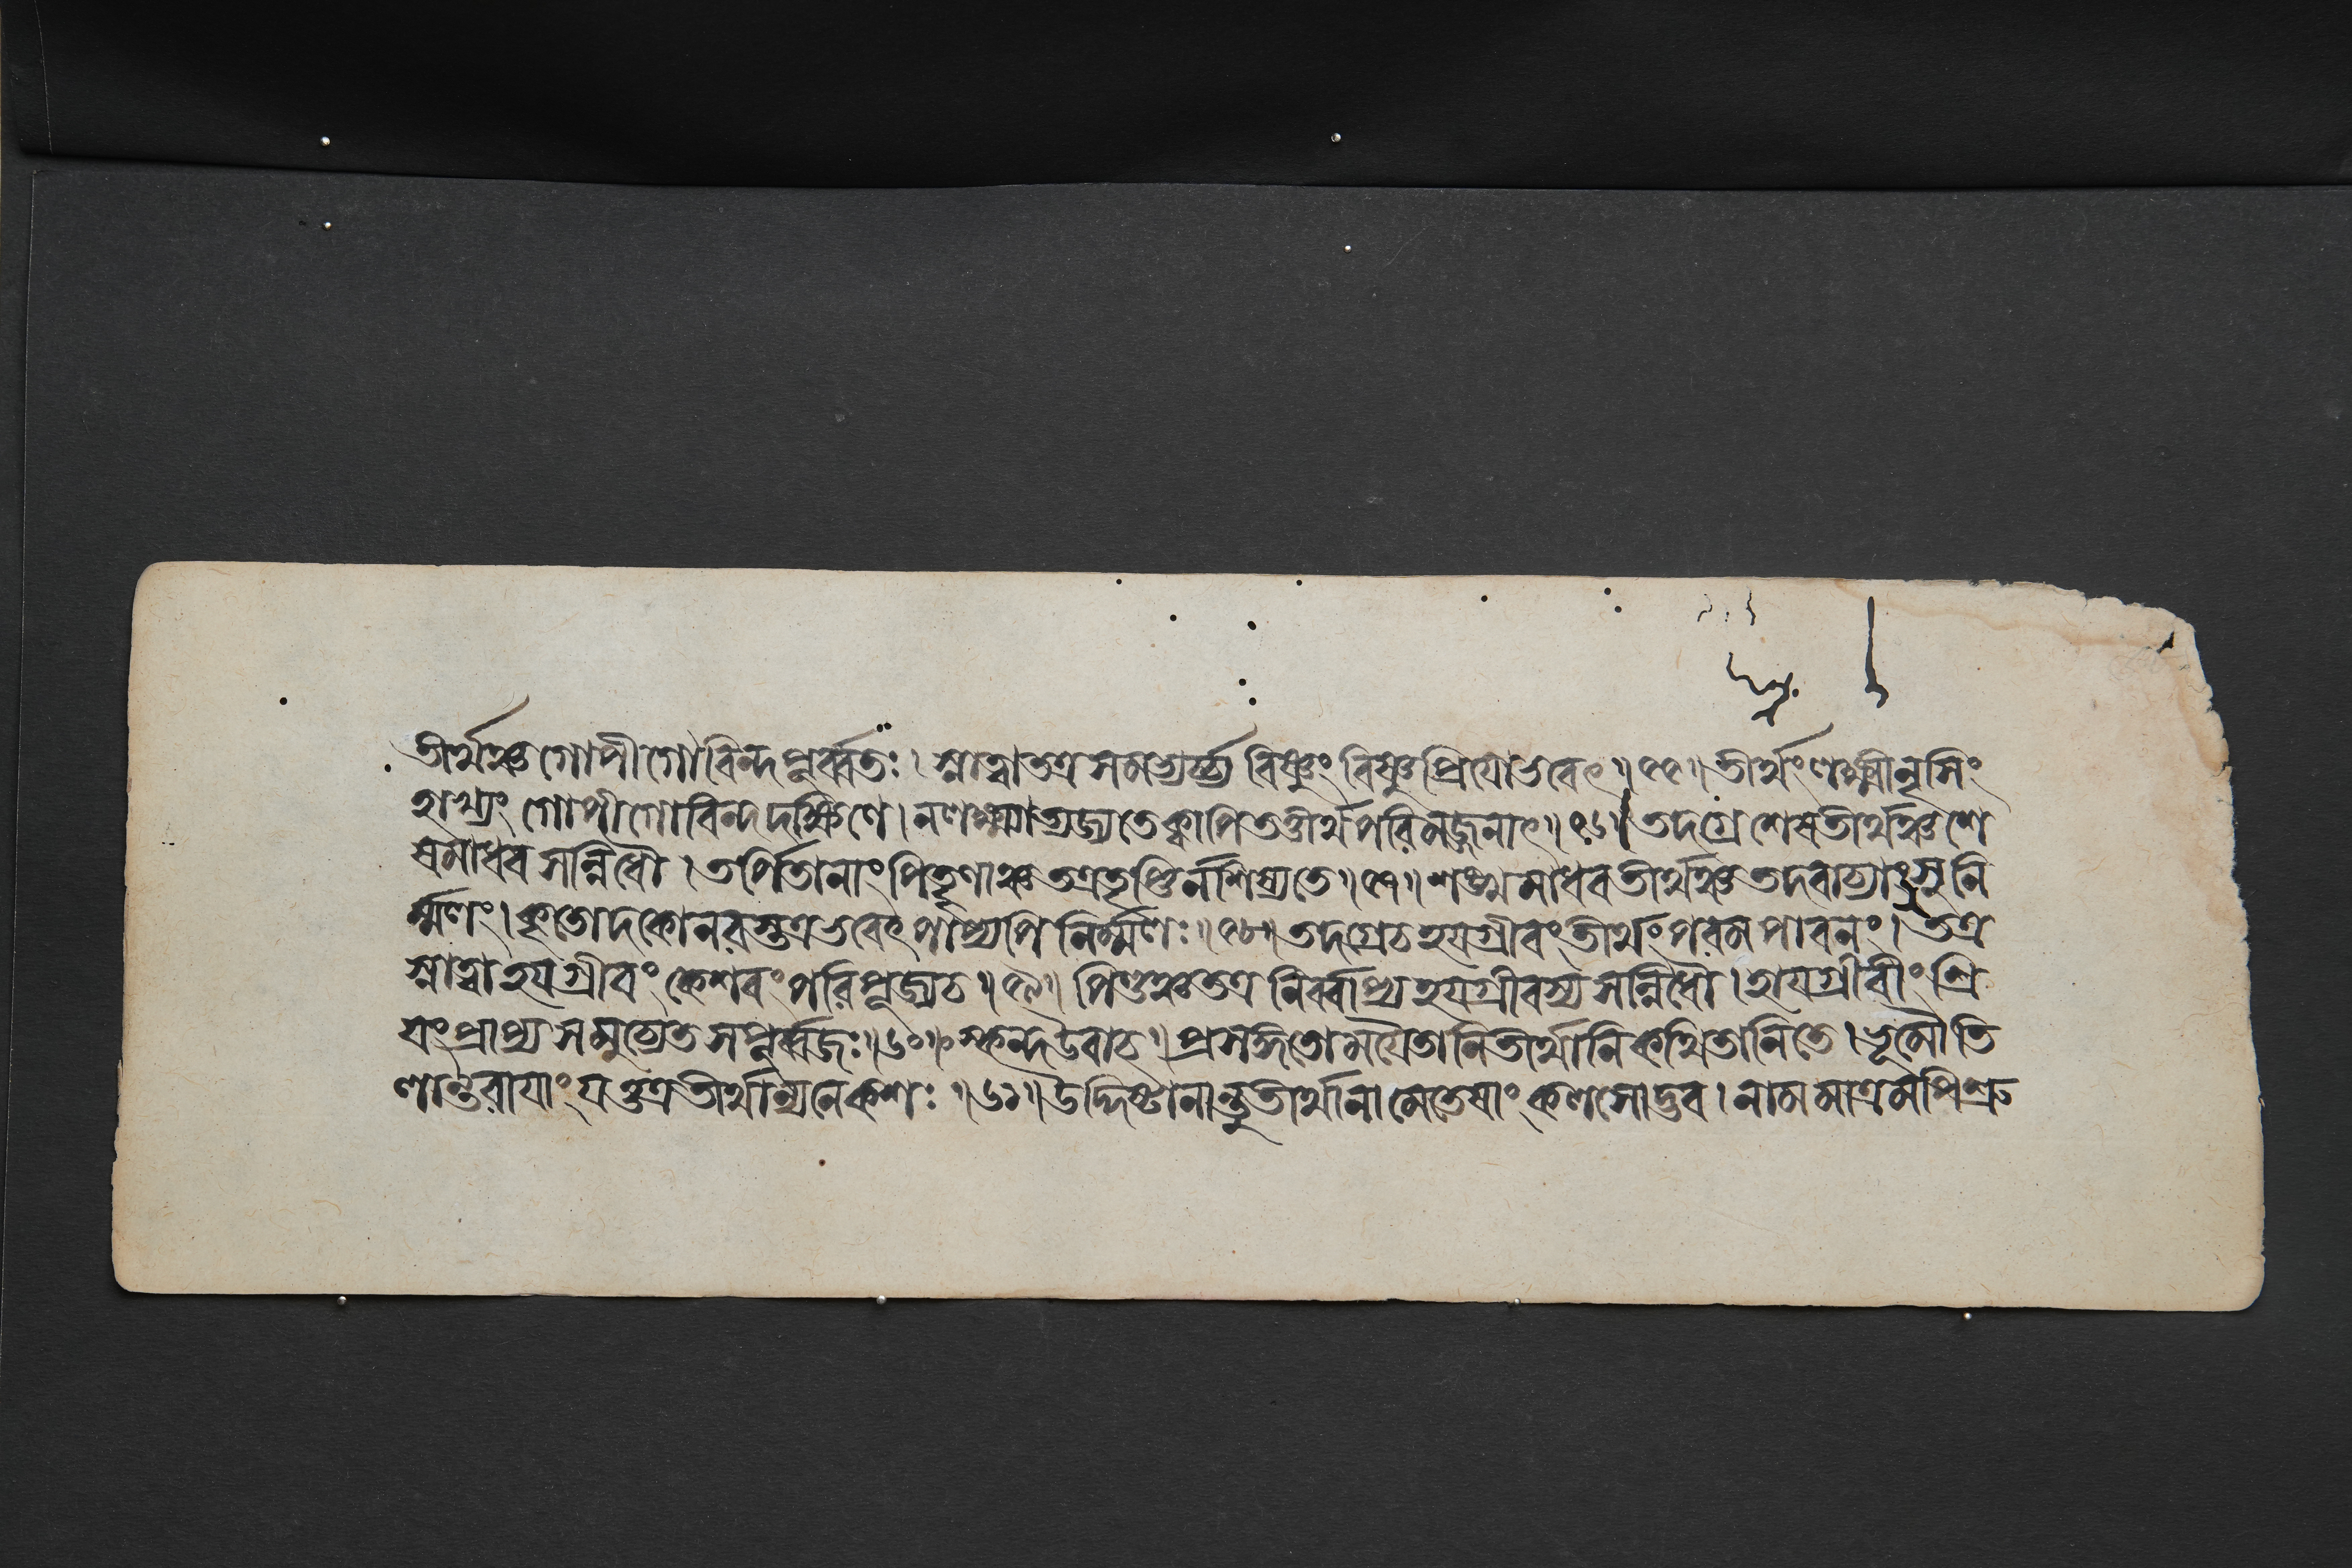 তীর্থঞ্চ গোপীগোবিন্দপূর্ব্বতঃ । স্নাত্বা তত্র সমভ্যর্চ্চ্য বিষ্ণুং বিষ্ণুপ্রিয়ো ভবেৎ ॥ ৫৫ ॥ তীর্থং লক্ষ্মীনৃসিং
হাখ্যং গোপীগোবিন্দদক্ষিণে । ন লক্ষ্ম্যা ত্যজ্যতে ক্বাপি তত্তীর্থপরিমজ্জনাৎ ॥ ৫৬ ॥ তদগ্রে শেষতীর্থঞ্চ শে
ষমাধবসন্নিধৌ । তর্পিতানাং পিতৄণাঞ্চ তত্র তৃপ্তির্নশিষ্যতে ॥ ৫৭ ॥ শঙ্খমাধবতীর্থঞ্চ তদবাচ্যাং সুনি
র্ম্মলং । কৃতোদকো নরস্তত্র ভবেৎ পাপ্যপি নির্ম্মলঃ ॥ ৫৮ ॥ তদগ্রে চ হয়গ্রীবং তীর্থং পরমপাবনং । তত্র
স্নাত্বা হয়গ্রীবং কেশবং পরিপূজ্য চ ॥ ৫৯ ॥ পিণ্ডঞ্চ তত্র নির্ব্বাপ্য হয়গ্রীবস্য সন্নিধৌ । হায়গ্রীবীং শ্রি
য়ং প্রাপ্য স মুচ্যেত সপূর্ব্বজঃ ॥ ৬০ ॥ স্কন্দ উবাচ ॥ প্রসঙ্গতো ময়ৈতানি তীর্থানি কথিতানি তে । ভূমৌ তি
লান্তরায়াং যত্তত্র তীর্থান্যনেকশঃ ॥ ৬১ ॥ উদ্দিষ্টানান্তু তীর্থানামেতেষাং কলসোদ্ভব । নামমাত্রমপি শ্রু